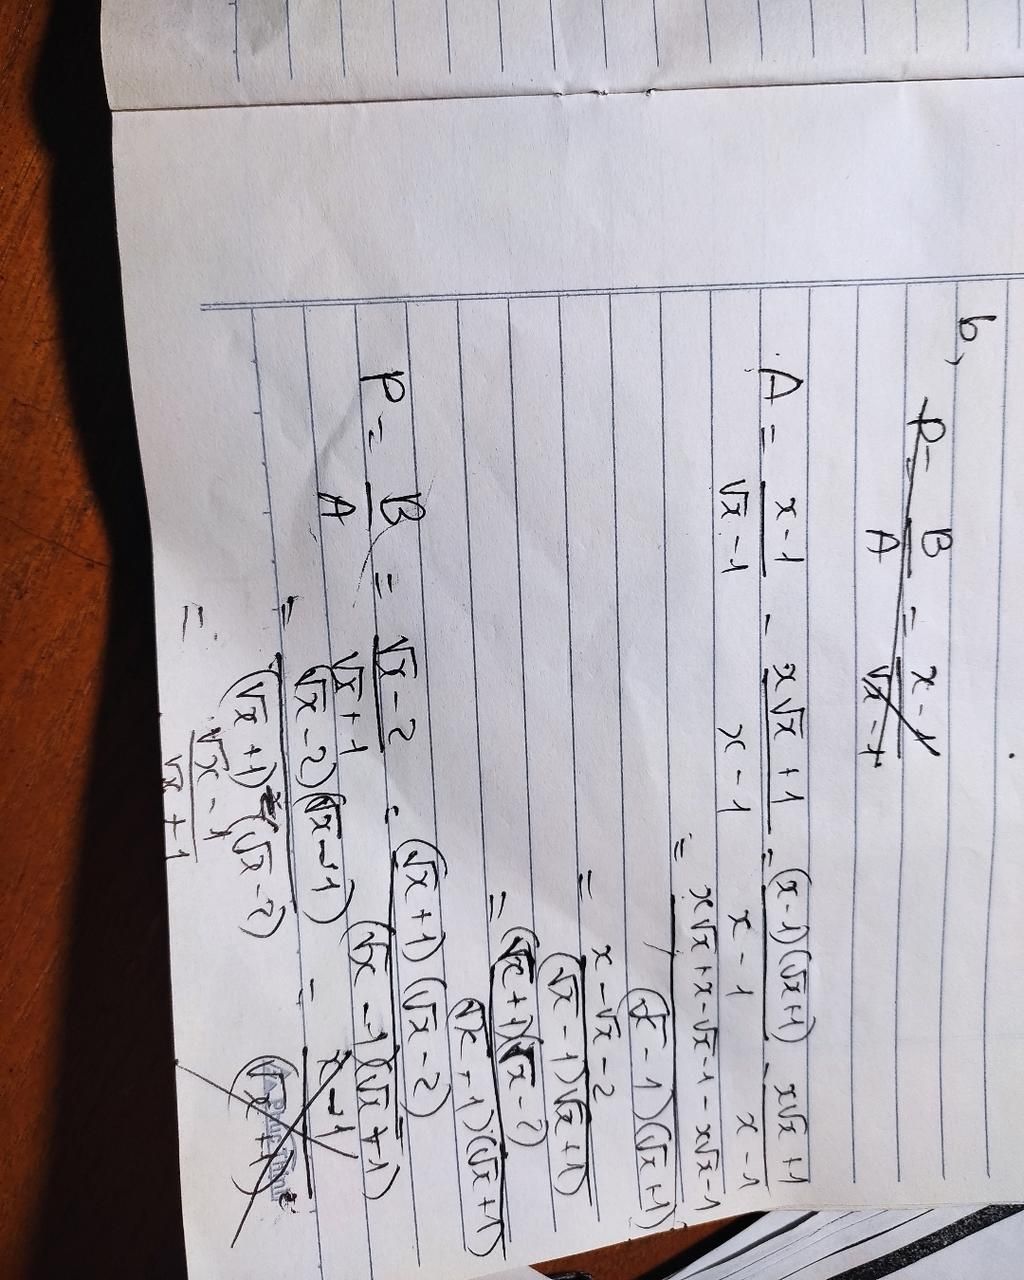 b,
P = B/A = x-1/√x-1
A = x-1/√x-1 - x√x+1/x-1 = (x-1)(√x+1)/x-1 - x√x+1/x-1
= x√x+x-√x-1-x√x-1/(√x-1)(√x+1)
= x-√x-2/(√x-1)(√x+1)
= (√x+1)(√x-2)/(√x-1)(√x+1)
P = B/A = √x-2/√x+1 : (√x+1)(√x-2)/(√x-1)(√x+1)
= (√x-2)(√x-1)/(√x+1)(√x-2) = x-1/(√x+1)
= √x-1/√x+1